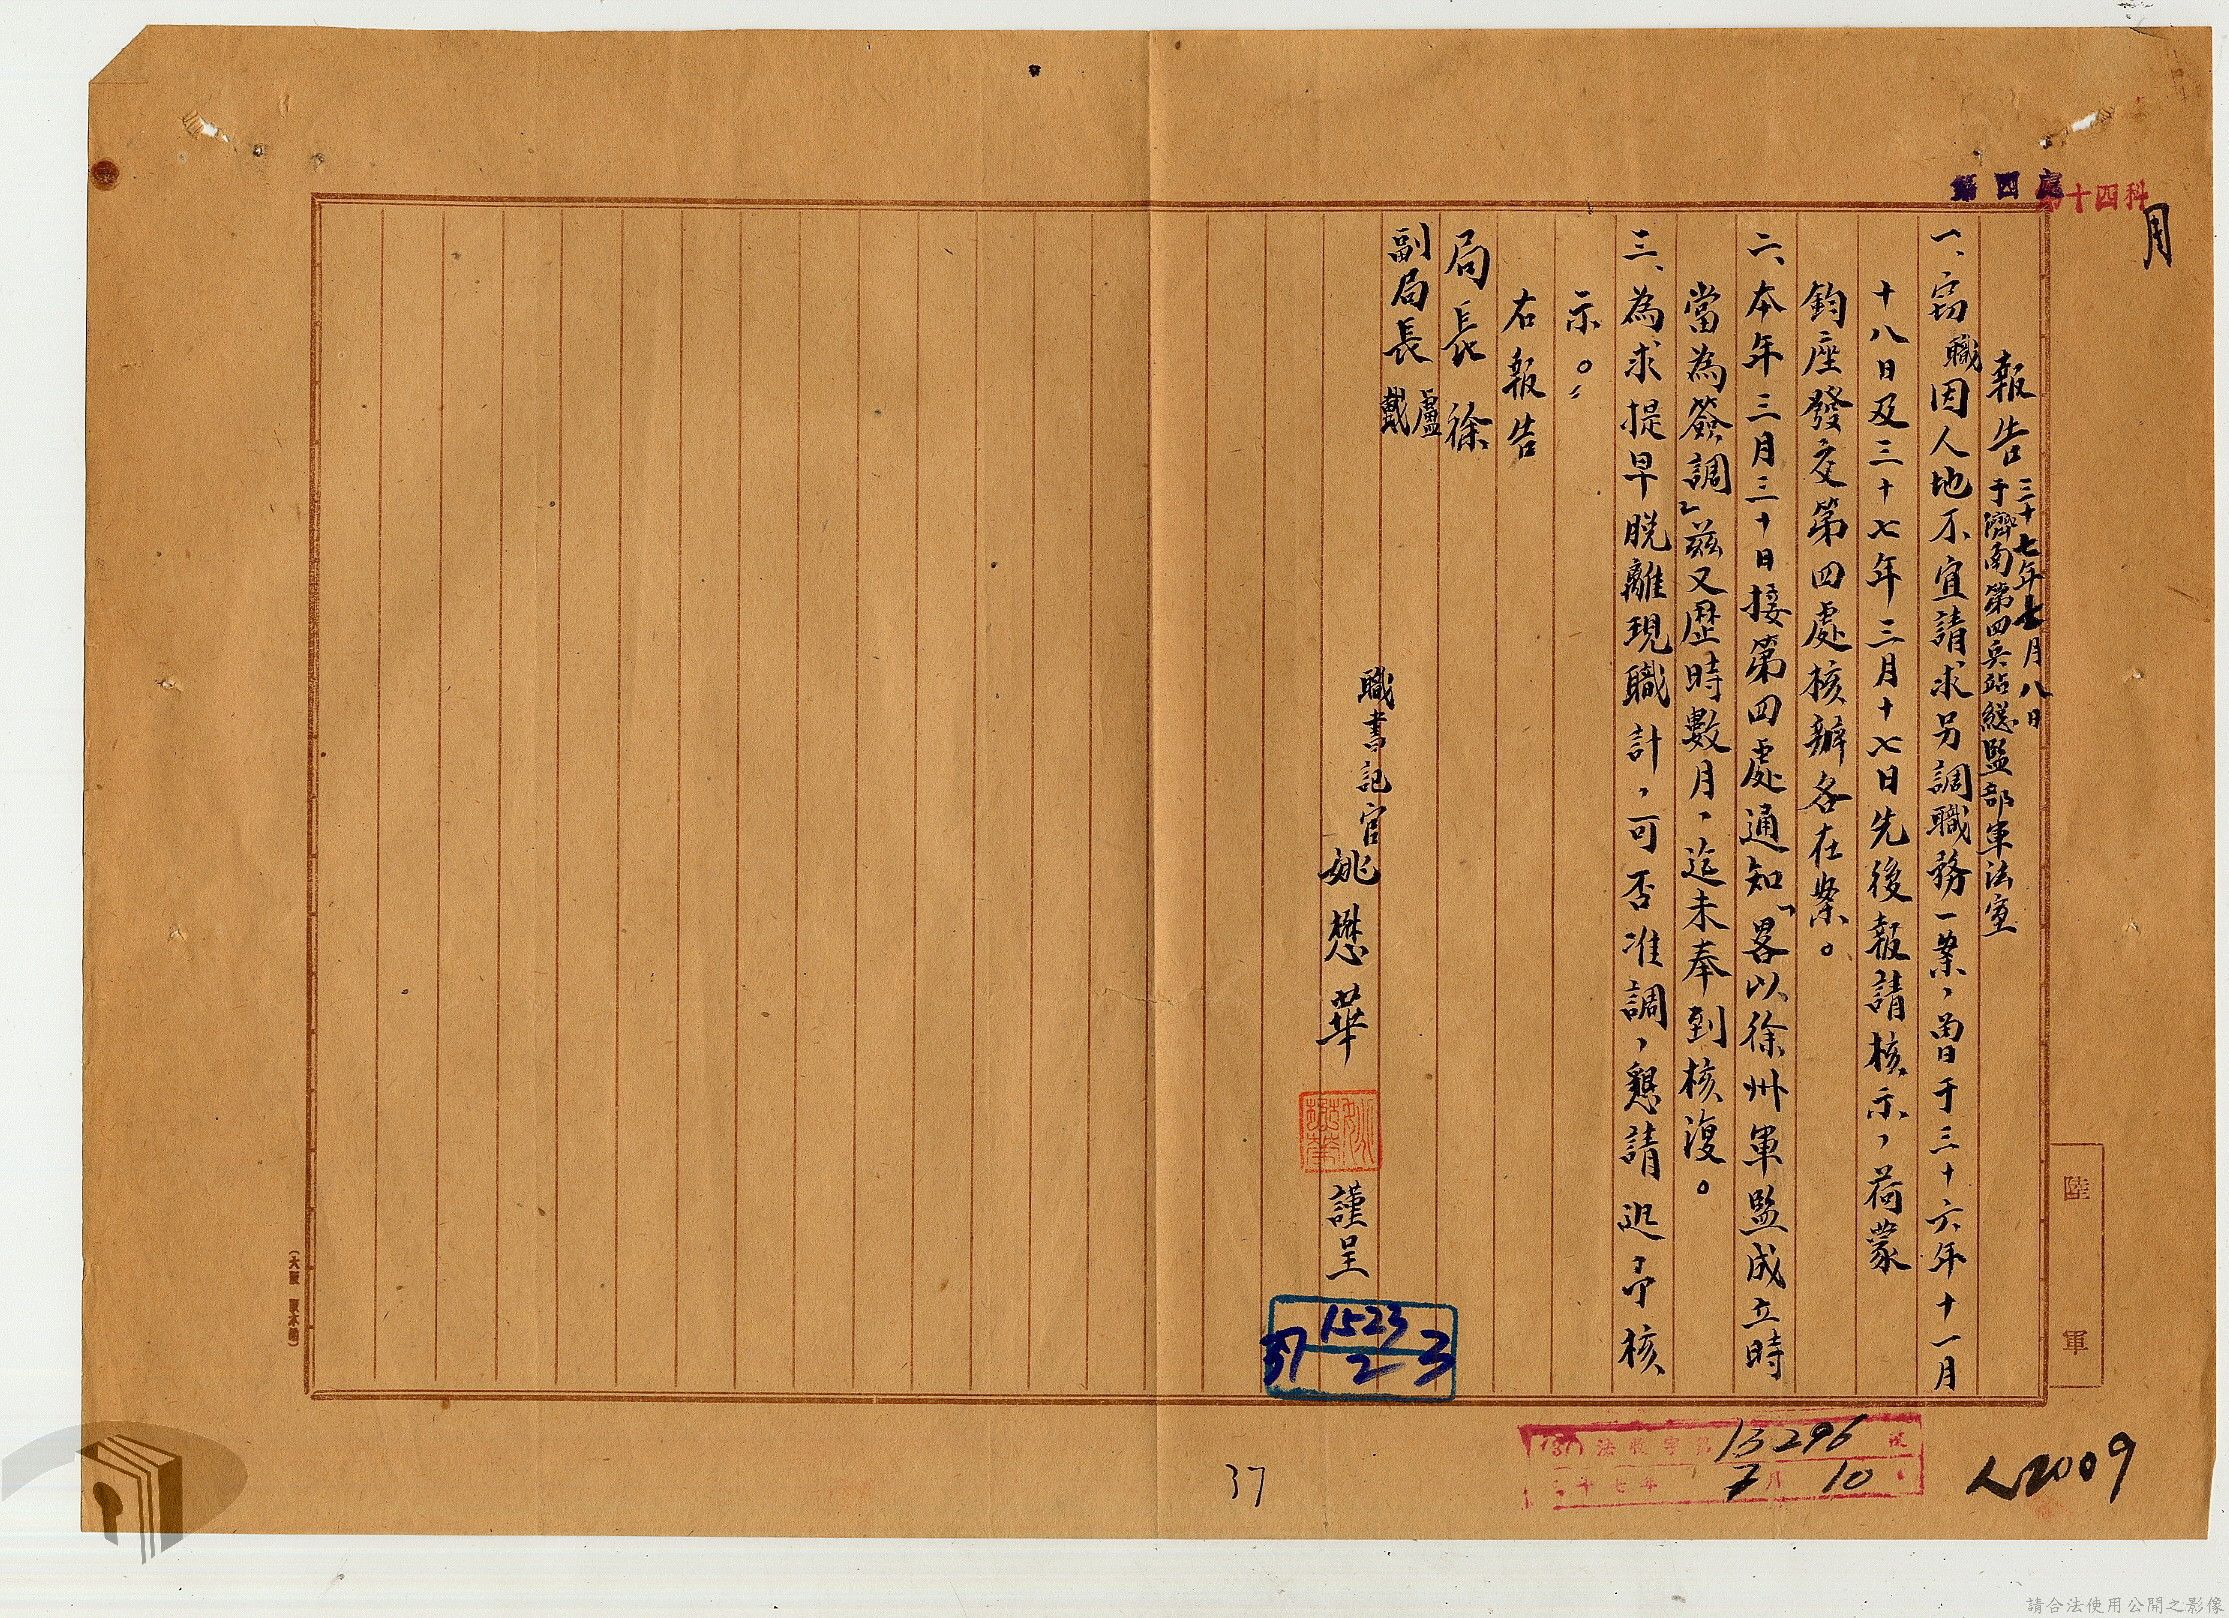 第四處
第十四科
月
報告 三十七年七月八日
于濟南第四兵站總監部軍法室
一、竊職因人地不宜請求另調職務一案，曾于三十六年十一月
十八日及三十七年三月十七日先後報請核示，荷蒙
鈞座發交第四處核辦各在案。
二、本年三月三十日接第四處通知「畧以徐州軍監成立時
當為簽調」茲又歷時數月，迄未奉到核復。
三、為求提早脫離現職計，可否准調，懇請迅予核
示。
右報告
局長 徐
副局長 盧
戴
職書記官 姚懋華 謹呈
姚懋華
1523
37 2 3
陸
軍
(37)法收字第13296號
三十七年 7月 10日
人2009
37
請合法使用公開之影像